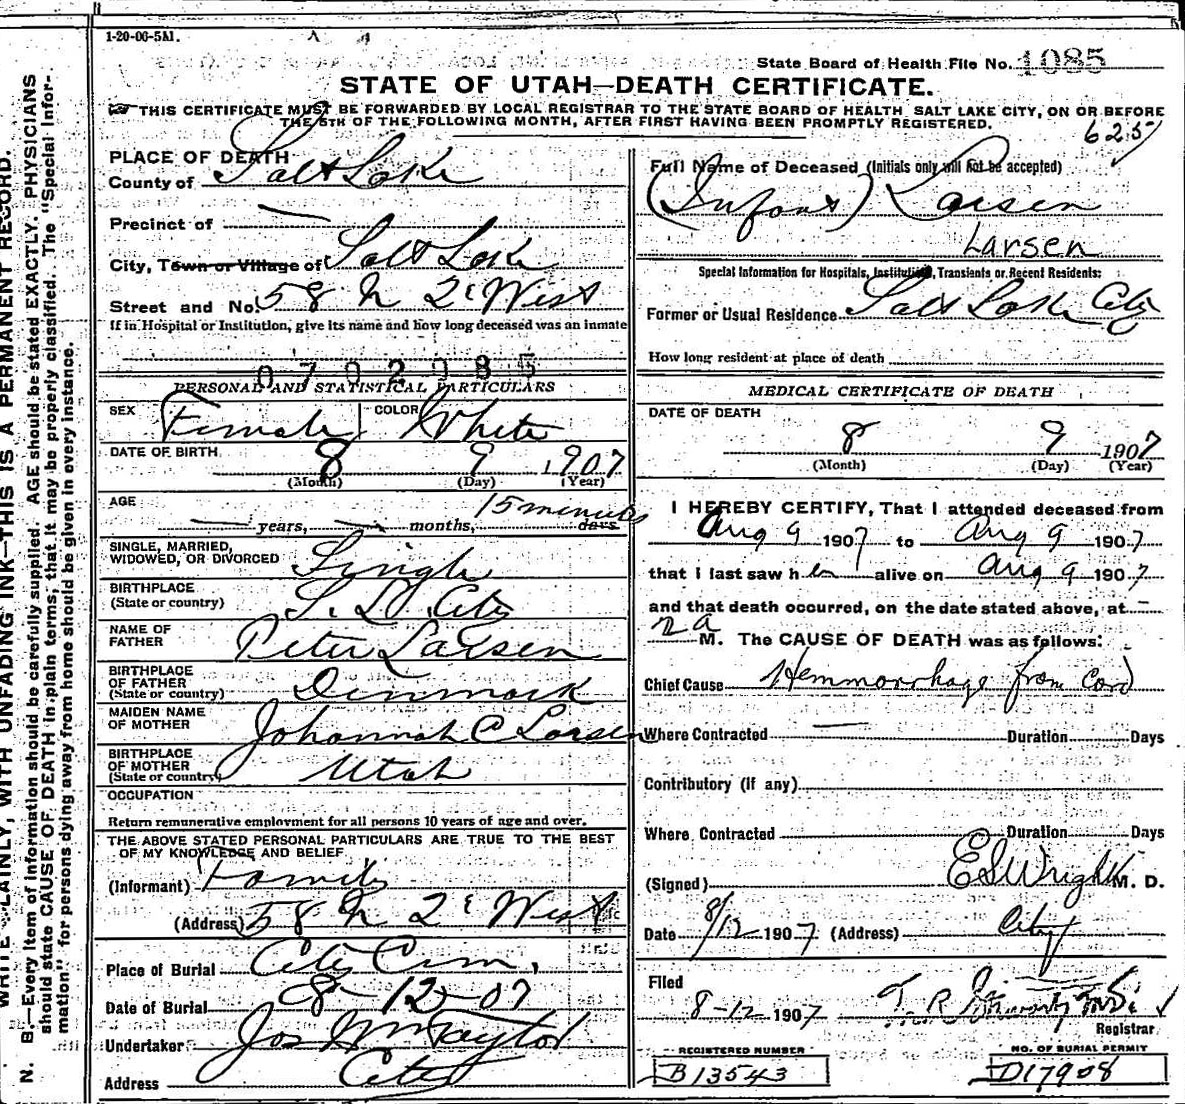 1-20-06-5M.
State Board of Health File No. 1085
STATE OF UTAH—DEATH CERTIFICATE.
THIS CERTIFICATE MUST BE FORWARDED BY LOCAL REGISTRAR TO THE STATE BOARD OF HEALTH, SALT LAKE CITY, ON OR BEFORE
THE 5TH OF THE FOLLOWING MONTH, AFTER FIRST HAVING BEEN PROMPTLY REGISTERED.
625
PLACE OF DEATH
County of Salt Lake
Precinct of —
City, Town or Village of Salt Lake
Street and No. 58 N 2d West
If in Hospital or Institution, give its name and how long deceased was an inmate
0702985
PERSONAL AND STATISTICAL PARTICULARS
SEX Female COLOR White
DATE OF BIRTH 8 9 1907
(Month) (Day) (Year)
AGE — years, — months, 15 minutes days
SINGLE, MARRIED,
WIDOWED, OR DIVORCED Single
BIRTHPLACE
(State or country) S. L. City
NAME OF
FATHER Peter Larsen
BIRTHPLACE
OF FATHER
(State or country) Denmark
MAIDEN NAME
OF MOTHER Johannah C Larsen
BIRTHPLACE
OF MOTHER
(State or country) Utah
OCCUPATION
Return remunerative employment for all persons 10 years of age and over.
THE ABOVE STATED PERSONAL PARTICULARS ARE TRUE TO THE BEST
OF MY KNOWLEDGE AND BELIEF
(Informant) Family
(Address) 58 N 2d West
Place of Burial City Cem.
Date of Burial 8-12-07
Undertaker Jos Wm Taylor
Address City
Full Name of Deceased (Initials only will not be accepted)
(Infant) Larsen
Larsen
Special Information for Hospitals, Institutions, Transients or Recent Residents:
Former or Usual Residence Salt Lake City
How long resident at place of death
MEDICAL CERTIFICATE OF DEATH
DATE OF DEATH
8 9 1907
(Month) (Day) (Year)
I HEREBY CERTIFY, That I attended deceased from
Aug 9 1907 to Aug 9 1907
that I last saw her alive on Aug 9 1907
and that death occurred, on the date stated above, at
2 a M. The CAUSE OF DEATH was as follows:
Chief Cause Hemmorrhage from Cord
Where Contracted — Duration Days
Contributory (if any)
Where Contracted Duration Days
(Signed) E S Wright M. D.
Date 8/12 1907 (Address) City
Filed
8-12 1907
Registrar
REGISTERED NUMBER
B13543
NO. OF BURIAL PERMIT
D17908
WRITE PLAINLY, WITH UNFADING INK—THIS IS A PERMANENT RECORD.
N. B.—Every item of information should be carefully supplied. AGE should be stated EXACTLY. PHYSICIANS
should state CAUSE OF DEATH in plain terms, that it may be properly classified. The "Special Infor-
mation" for persons dying away from home should be given in every instance.